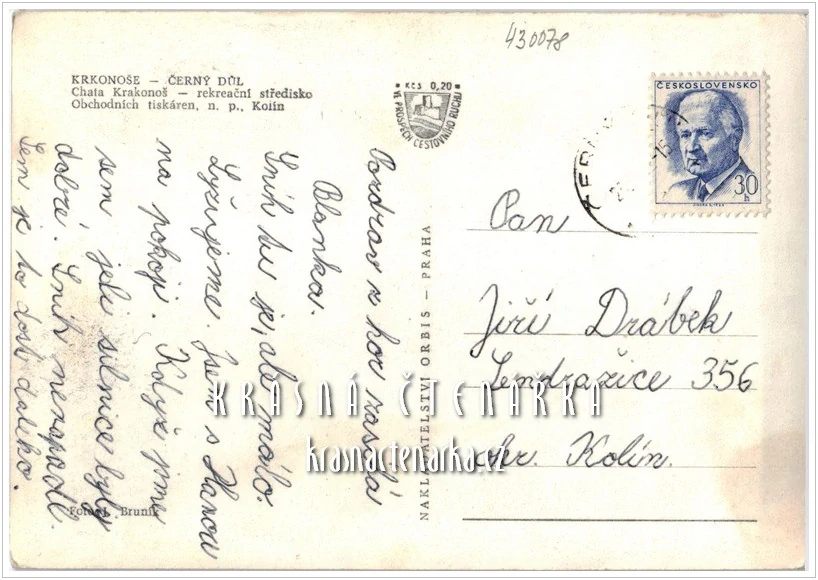 430078
KRKONOŠE — ČERNÝ DŮL
Chata Krakonoš — rekreační středisko
Obchodních tiskáren, n. p., Kolín
KČS 0,20
VE PROSPĚCH CESTOVNÍHO RUCHU
ČESKOSLOVENSKO
30 h
Pozdrav z hor zasílá
Blanka.
Sníh tu je, ale málo.
Lyžujeme. Jsem s Hanou
na pokoji. Když jsme
sem, jeli silnice byly
dobré. Sníh nenapadl.
Sem je to dost daleko.
Pan
Jiří Drábek
Lendražice 356
okr. Kolín.
NAKLADATELSTVÍ ORBIS — PRAHA
Foto J. Bruník
KRÁSNÁ ČTENÁŘKA
krasnactenarka.cz